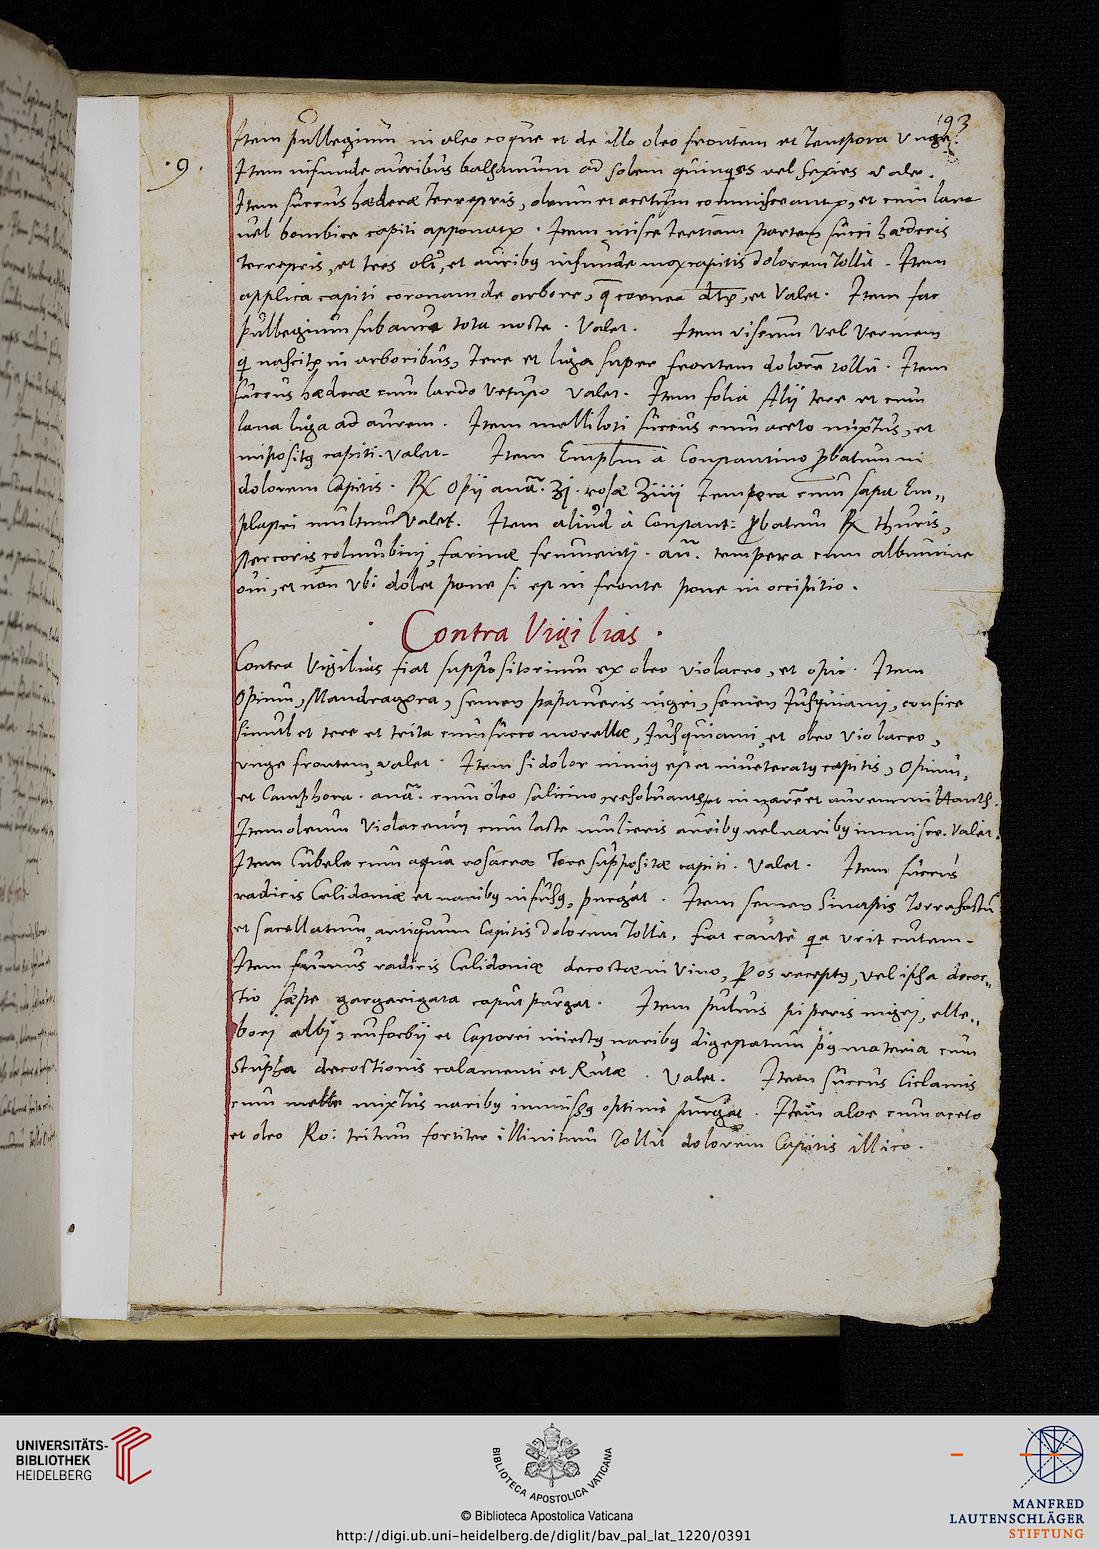 193
.9.
Item pullegium in oleo coque et de illo oleo frontem et tempora unge.
Item infunde auribus balsamum ad solem quinquies vel sexies valet.
Item succus hæderæ terrestris, oleum et acetum commisceantur, et cum lana
vel bombice capiti apponatur. Item misce tertiam partem succi hæderis
terrestris, et tres olei, et auribus infunde mox capitis dolorem tollit. Item
applica capiti coronam de arbore, q̄ cornea dr̄, et valet. Item fac
pullegium sub aure tota nocte. Valet. Item viscum vel vermem
qi nascitur in arboribus, tere et liga super frontem dolorē tollit. Item
succus hæderæ cum lardo vetusto valet. Item folia Alij tere et cum
lana liga ad aurem. Item melliloti succus cum aceto mixtus, et
impositus capiti. valet. Item Emplm̄ a Constantino probatum in
dolorem Capitis. ℞ Opij anā. ʒj. rosæ ʒiiij Tempera cum sapa Em„
plastri multum valet. Item aliud à Constant: probatum ℞ thuris,
stercoris columbini, farinæ frumenti. añ. tempera cum albumine
oui, et non vbi dolet pone si est in fronte pone in occipitio.
Contra Vigilias.
Contra Vigilias fiat suppositorium ex oleo violaceo, et opio. Item
Opium, Mandragora, semen papaueris nigri, semen Jusquiami, confice
simul et tere et trita cum succo morellæ, Jusquiami, et oleo violaceo,
unge frontem, valet. Item si dolor nimius est et inueteratus capitis, Opium,
et Camphora. anā. cum oleo salicino, resoluantur et in narē et aurem mittantur.
Item oleum violaceum cum lacte mulieris auribus vel naribus immisce. Valet.
Item Cubebe cum aqua rosacea tere suppositæ capiti. Valet. Item succus
radicis Celidoniæ et naribus infusus, purgat. Item semen Sinapis torrefactū
et sacellatum, antiquum Capitis dolorem tollit, fiat cautè qa vrit cutem.
Item fumus radicis Celidoniæ decoctæ in vino, per os receptus, vel ipsa decoc„
tio sæpe gargarigata caput purgat. Item puluis piperis nigri, elle„
bori albi, euforbij et Castorei iniectus naribus digestatum prius materia cum
stupha decoctionis calamenti et Rutæ. Valet. Item succus Ciclamis
cum melle mixtus naribus immissus optime purgat. Item aloe cum aceto
et oleo Ro: tritum fortiter illinitum tollit dolorem Capitis illico.
UNIVERSITÄTS-
BIBLIOTHEK
HEIDELBERG
BIBLIOTECA APOSTOLICA VATICANA
© Biblioteca Apostolica Vaticana
http://digi.ub.uni-heidelberg.de/diglit/bav_pal_lat_1220/0391
MANFRED
LAUTENSCHLÄGER
STIFTUNG